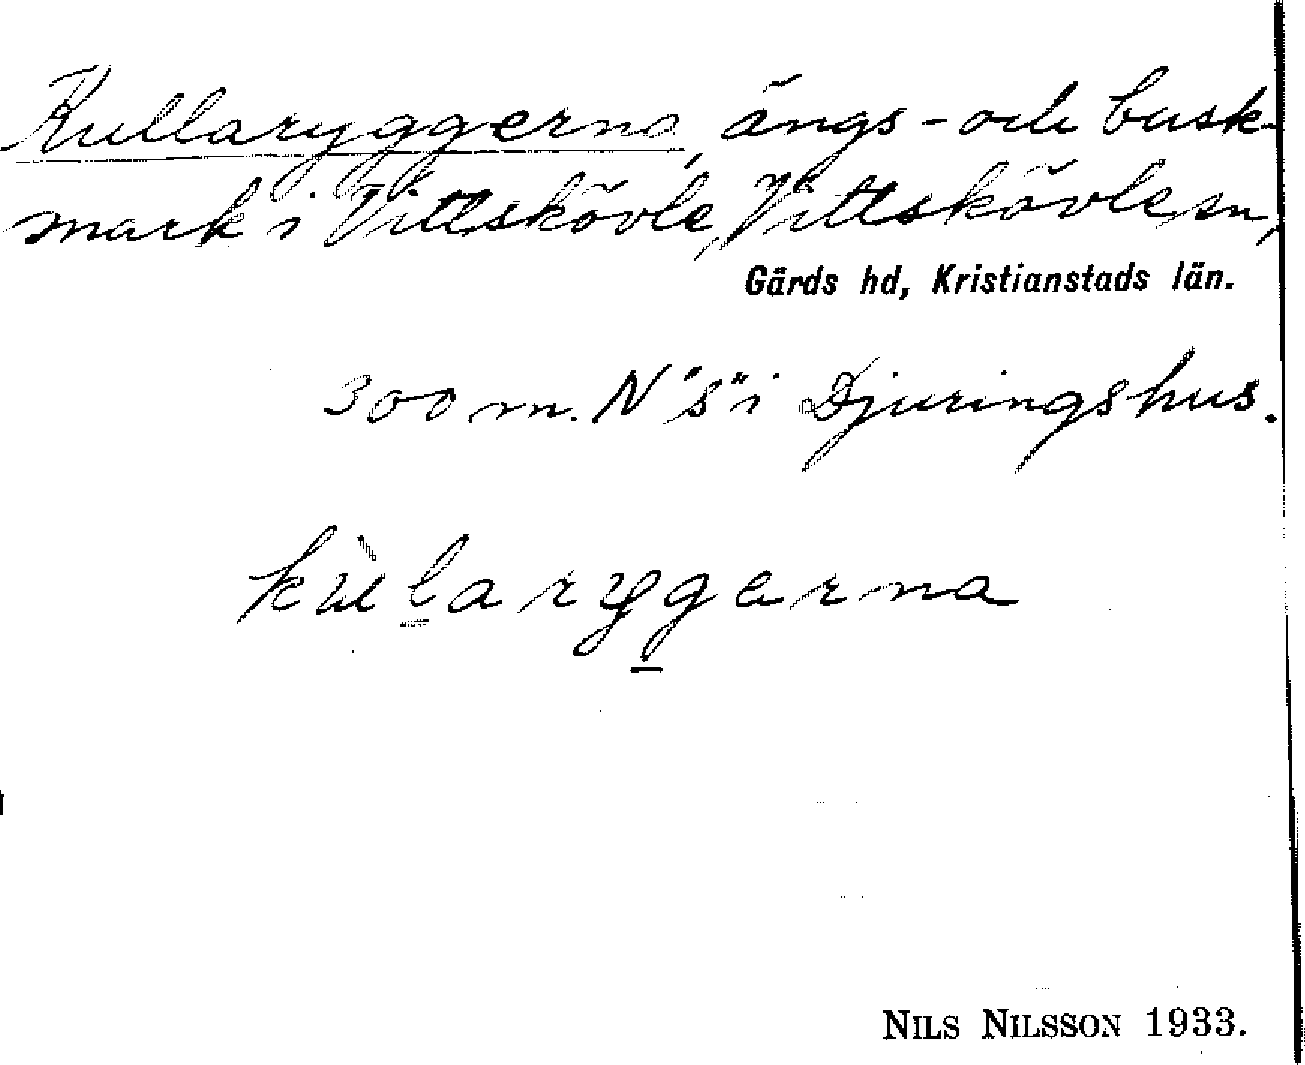 Kullaryggerna, ängs- och busk-
mark i Vittskövle, Vittskövle sn,
Gärds hd, Kristianstads län.
300 m. N "s" i Djuringshus.
kùlarygarna
NILS NILSSON 1933.